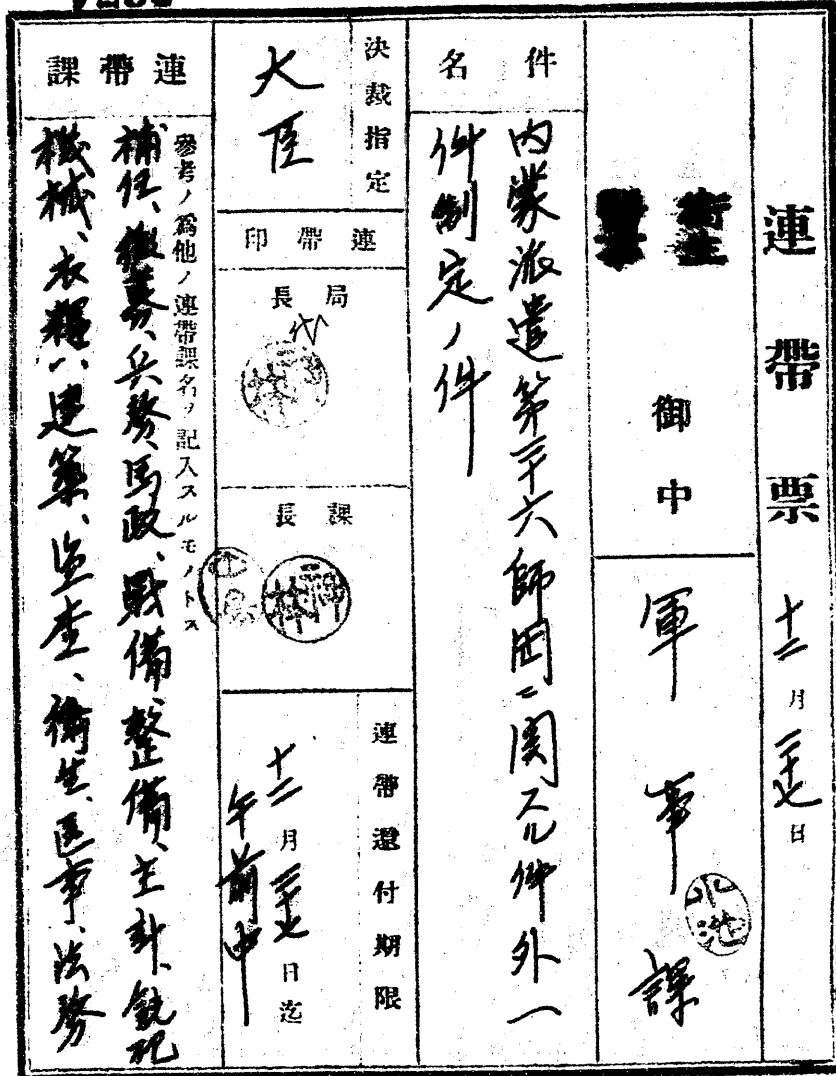 連帶票 十二月二十七日
衛生
醫事
御中
軍事課
小池
件名
内蒙派遣第二十六師団ニ関スル件外一
件制定ノ件
決裁指定
大臣
連帶印
局長
代
課長
連帶還付期限
十二月二十七日迄
午前中
連帶課
參考ノ爲他ノ連帶課名ヲ記入スルモノトス
補任、徴募、兵務、馬政、戰備、整備、主計、銃砲
機械、衣糧、建築、監査、衛生、医事、法務